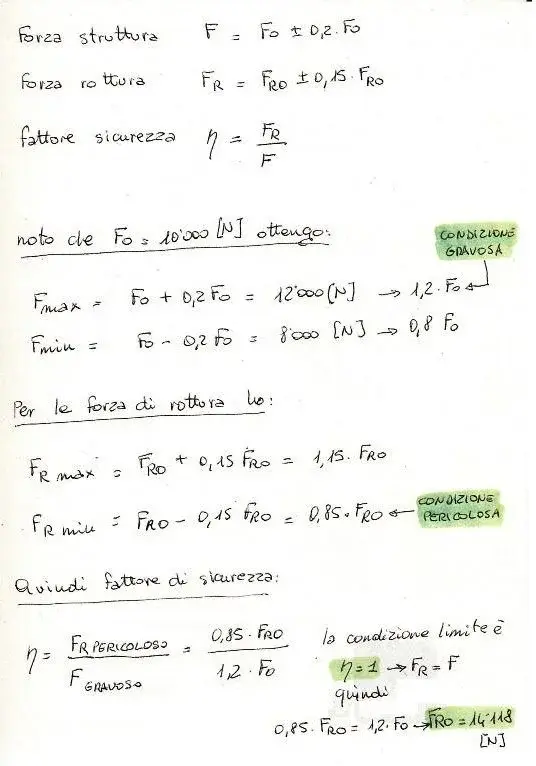 Forza struttura F = Fo ± 0,2·Fo
Forza rottura FR = FRO ± 0,15·FRO
fattore sicurezza η = FR / F
noto che Fo = 10'000 [N] ottengo:
CONDIZIONE
GRAVOSA
Fmax = Fo + 0,2 Fo = 12'000 [N] → 1,2·Fo ←
Fmin = Fo - 0,2 Fo = 8'000 [N] → 0,8 Fo
Per le forza di rottura ho:
FR max = FRO + 0,15 FRO = 1,15·FRO
FR min = FRO - 0,15 FRO = 0,85·FRO ← CONDIZIONE
PERICOLOSA
Quindi fattore di sicurezza:
η = FR PERICOLOSO / F GRAVOSO = 0,85·FRO / 1,2·Fo
la condizione limite è
η = 1 → FR = F
quindi
0,85·FRO = 1,2·Fo → FRO = 14'118
[N]